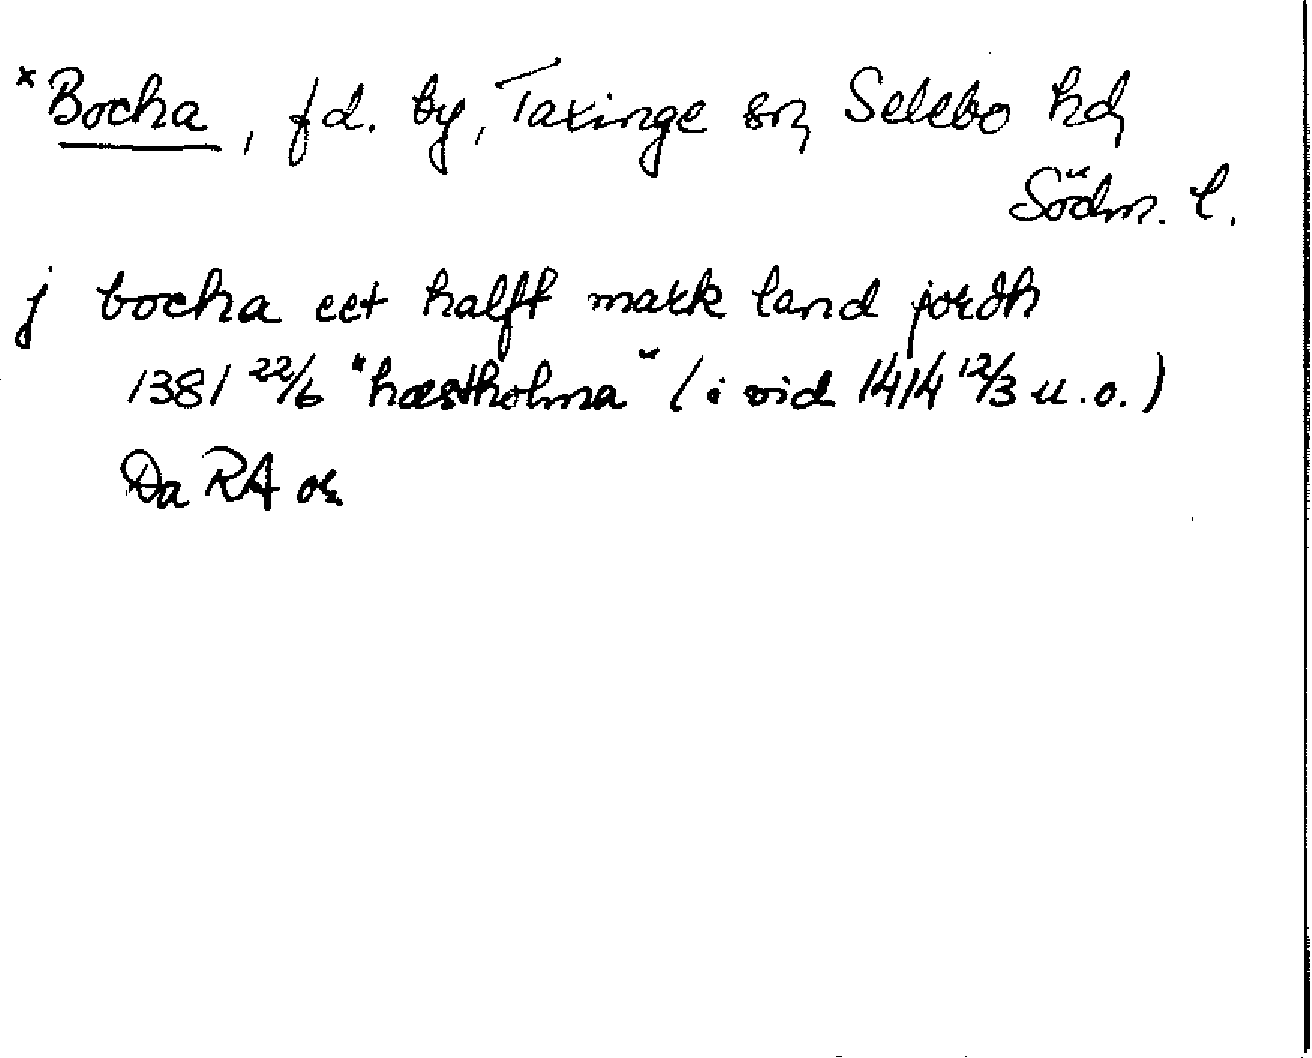 *Bocha, fd. by, Taxinge sn, Selebo hd,
Södm. l.
j bocha eet halfft mark land jordh
1381 22/6 "hæstholma" (i vid 1414 12/3 u.o.)
Da RA or.